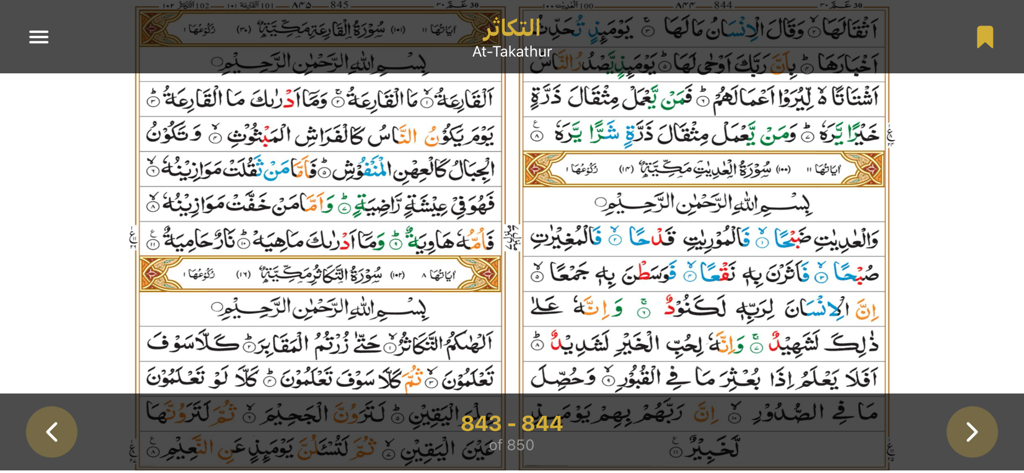 التكاثر
At-Takathur
844
اَثْقَالَهَا ۙ وَقَالَ الْاِنْسَانُ مَا لَهَا ۚ يَوْمَىِٕذٍ تُحَدِّثُ
اَخْبَارَهَا ۙ بِاَنَّ رَبَّكَ اَوْحٰى لَهَا ؕ يَوْمَىِٕذٍ يَّصْدُرُ النَّاسُ
اَشْتَاتًا ۙ لِّيُرَوْا اَعْمَالَهُمْ ؕ فَمَنْ يَّعْمَلْ مِثْقَالَ ذَرَّةٍ
خَيْرًا يَّرَهٗ ؕ وَمَنْ يَّعْمَلْ مِثْقَالَ ذَرَّةٍ شَرًّا يَّرَهٗ
اٰيَاتُهَا ۱۱ (۱۰۰) سُوْرَةُ الْعٰدِيٰتِ مَكِّيَّةٌ (۱۴) رُكُوْعُهَا ۱
بِسْمِ اللّٰهِ الرَّحْمٰنِ الرَّحِيْمِ
وَالْعٰدِيٰتِ ضَبْحًا ۙ فَالْمُوْرِيٰتِ قَدْحًا ۙ فَالْمُغِيْرٰتِ
صُبْحًا ۙ فَاَثَرْنَ بِهٖ نَقْعًا ۙ فَوَسَطْنَ بِهٖ جَمْعًا ۙ
اِنَّ الْاِنْسَانَ لِرَبِّهٖ لَكَنُوْدٌ ۚ وَاِنَّهٗ عَلٰى
ذٰلِكَ لَشَهِيْدٌ ۚ وَاِنَّهٗ لِحُبِّ الْخَيْرِ لَشَدِيْدٌ ؕ
اَفَلَا يَعْلَمُ اِذَا بُعْثِرَ مَا فِى الْقُبُوْرِ ۙ وَحُصِّلَ
مَا فِى الصُّدُوْرِ ۙ اِنَّ رَبَّهُمْ بِهِمْ يَوْمَىِٕذٍ
لَّخَبِيْرٌ
845
اٰيَاتُهَا ۱۱ (۱۰۱) سُوْرَةُ الْقَارِعَةِ مَكِّيَّةٌ (۳۰) رُكُوْعُهَا ۱
بِسْمِ اللّٰهِ الرَّحْمٰنِ الرَّحِيْمِ
اَلْقَارِعَةُ ۙ مَا الْقَارِعَةُ ۚ وَمَاۤ اَدْرٰىكَ مَا الْقَارِعَةُ ؕ
يَوْمَ يَكُوْنُ النَّاسُ كَالْفَرَاشِ الْمَبْثُوْثِ ۙ وَتَكُوْنُ
الْجِبَالُ كَالْعِهْنِ الْمَنْفُوْشِ ؕ فَاَمَّا مَنْ ثَقُلَتْ مَوَازِيْنُهٗ ۙ
فَهُوَ فِىْ عِيْشَةٍ رَّاضِيَةٍ ؕ وَاَمَّا مَنْ خَفَّتْ مَوَازِيْنُهٗ ۙ
فَاُمُّهٗ هَاوِيَةٌ ؕ وَمَاۤ اَدْرٰىكَ مَاهِيَهْ ؕ نَارٌ حَامِيَةٌ
اٰيَاتُهَا ۸ (۱۰۲) سُوْرَةُ التَّكَاثُرِ مَكِّيَّةٌ (۱۶) رُكُوْعُهَا ۱
بِسْمِ اللّٰهِ الرَّحْمٰنِ الرَّحِيْمِ
اَلْهٰىكُمُ التَّكَاثُرُ ۙ حَتّٰى زُرْتُمُ الْمَقَابِرَ ؕ كَلَّا سَوْفَ
تَعْلَمُوْنَ ۙ ثُمَّ كَلَّا سَوْفَ تَعْلَمُوْنَ ؕ كَلَّا لَوْ تَعْلَمُوْنَ
عِلْمَ الْيَقِيْنِ ؕ لَتَرَوُنَّ الْجَحِيْمَ ۙ ثُمَّ لَتَرَوُنَّهَا
عَيْنَ الْيَقِيْنِ ۙ ثُمَّ لَتُسْـَٔلُنَّ يَوْمَىِٕذٍ عَنِ النَّعِيْمِ
843 - 844
of 850